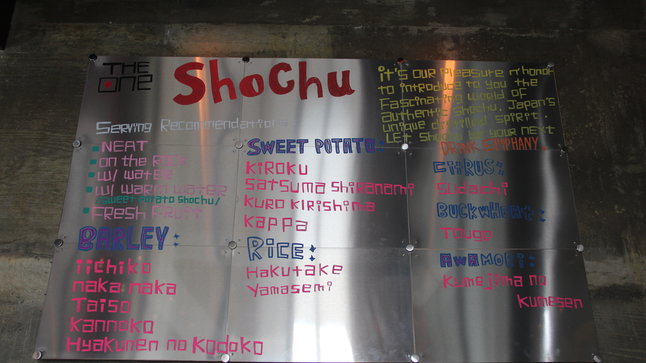 THE
One
Shochu
it's our pleasure n' honor
to introduce to you the
fascinating world of
authentic shochu, Japan's
unique distilled spirit
Let shochu be your next
DRINK SYMPHANY
Serving Recommendations
NEAT
on the rocks
w/ water
w/ warm water
(sweet potato shochu)
Fresh Fruit
BARLEY:
iichiko
naka naka
Taiso
Kannoko
Hyakunen no Kodoko
SWEET POTATO:
Kiroku
Satsuma Shiranami
Kuro Kirishima
Kappa
Rice:
Hakutake
Yamasemi
CITRUS:
Sudachi
BUCKWHEAT:
Towari
AWAMORI:
Kumejima no
Kumesen